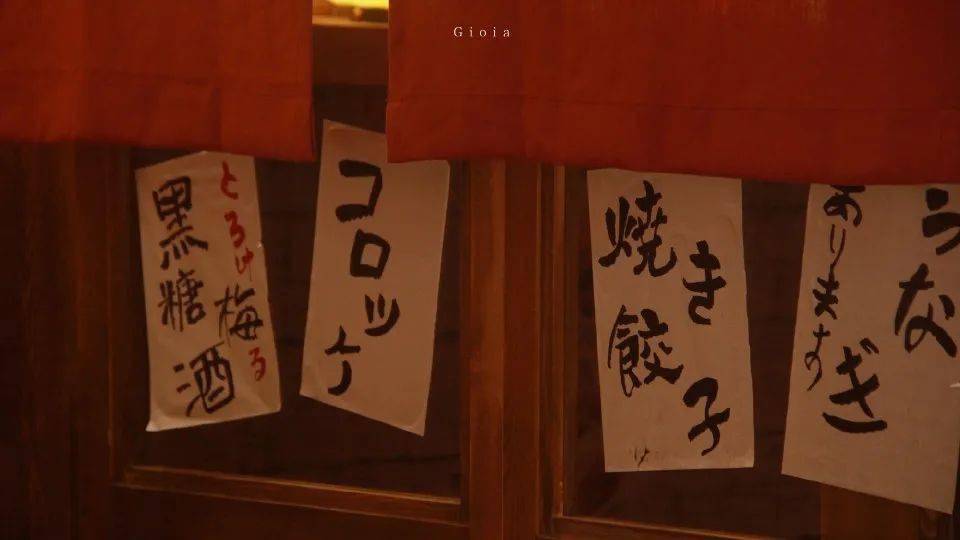 Gioia
とろける
黒糖梅酒
コロッケ
焼き餃子
うなぎ
あります